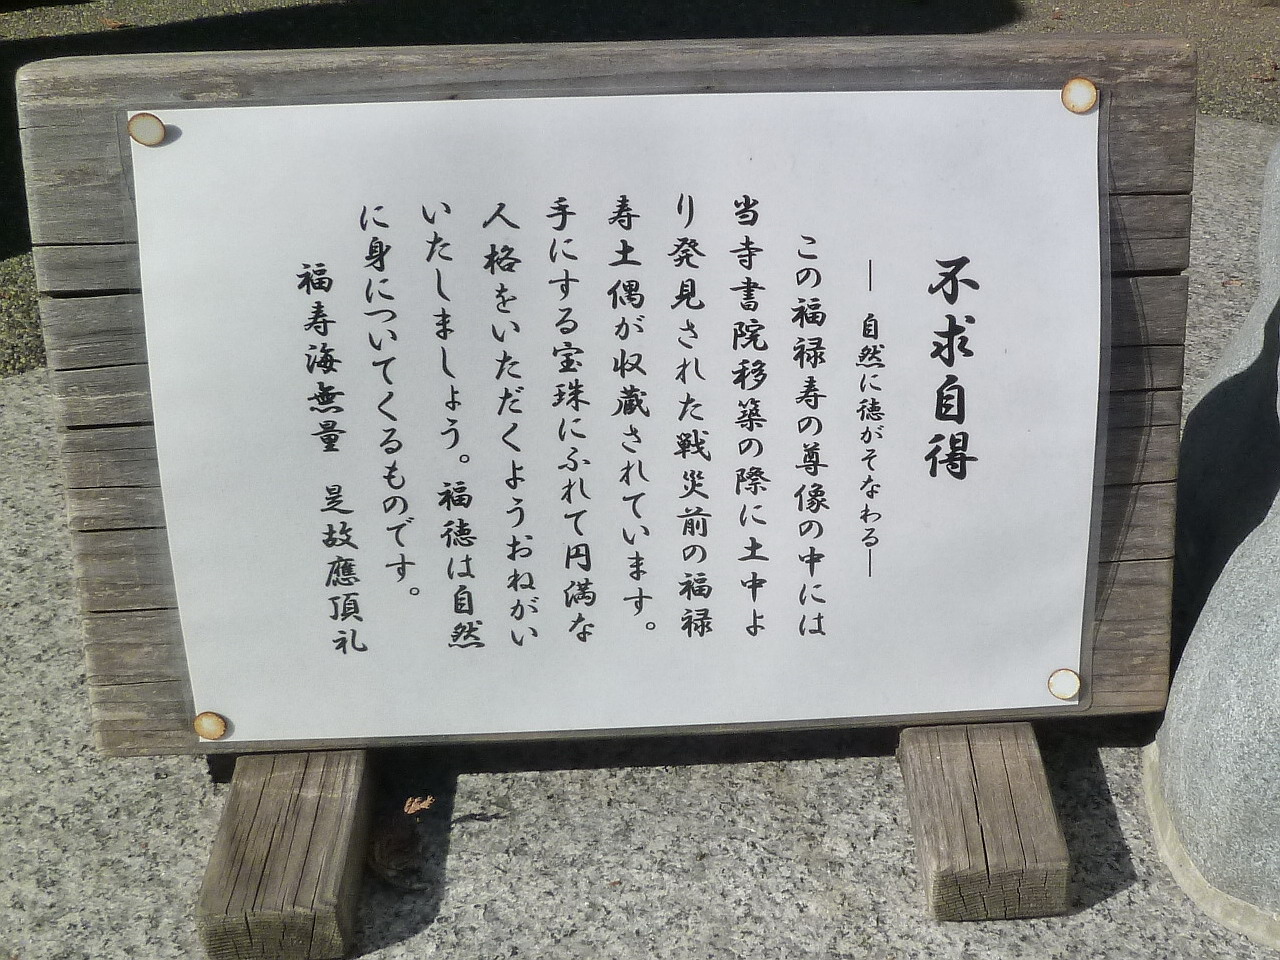 不求自得
― 自然に徳がそなわる―
この福禄寿の尊像の中には
当寺書院移築の際に土中よ
り発見された戦災前の福禄
寿土偶が収蔵されています。
手にする宝珠にふれて円満な
人格をいただくようおねがい
いたしましょう。福徳は自然
に身についてくるものです。
福寿海無量　是故應頂礼